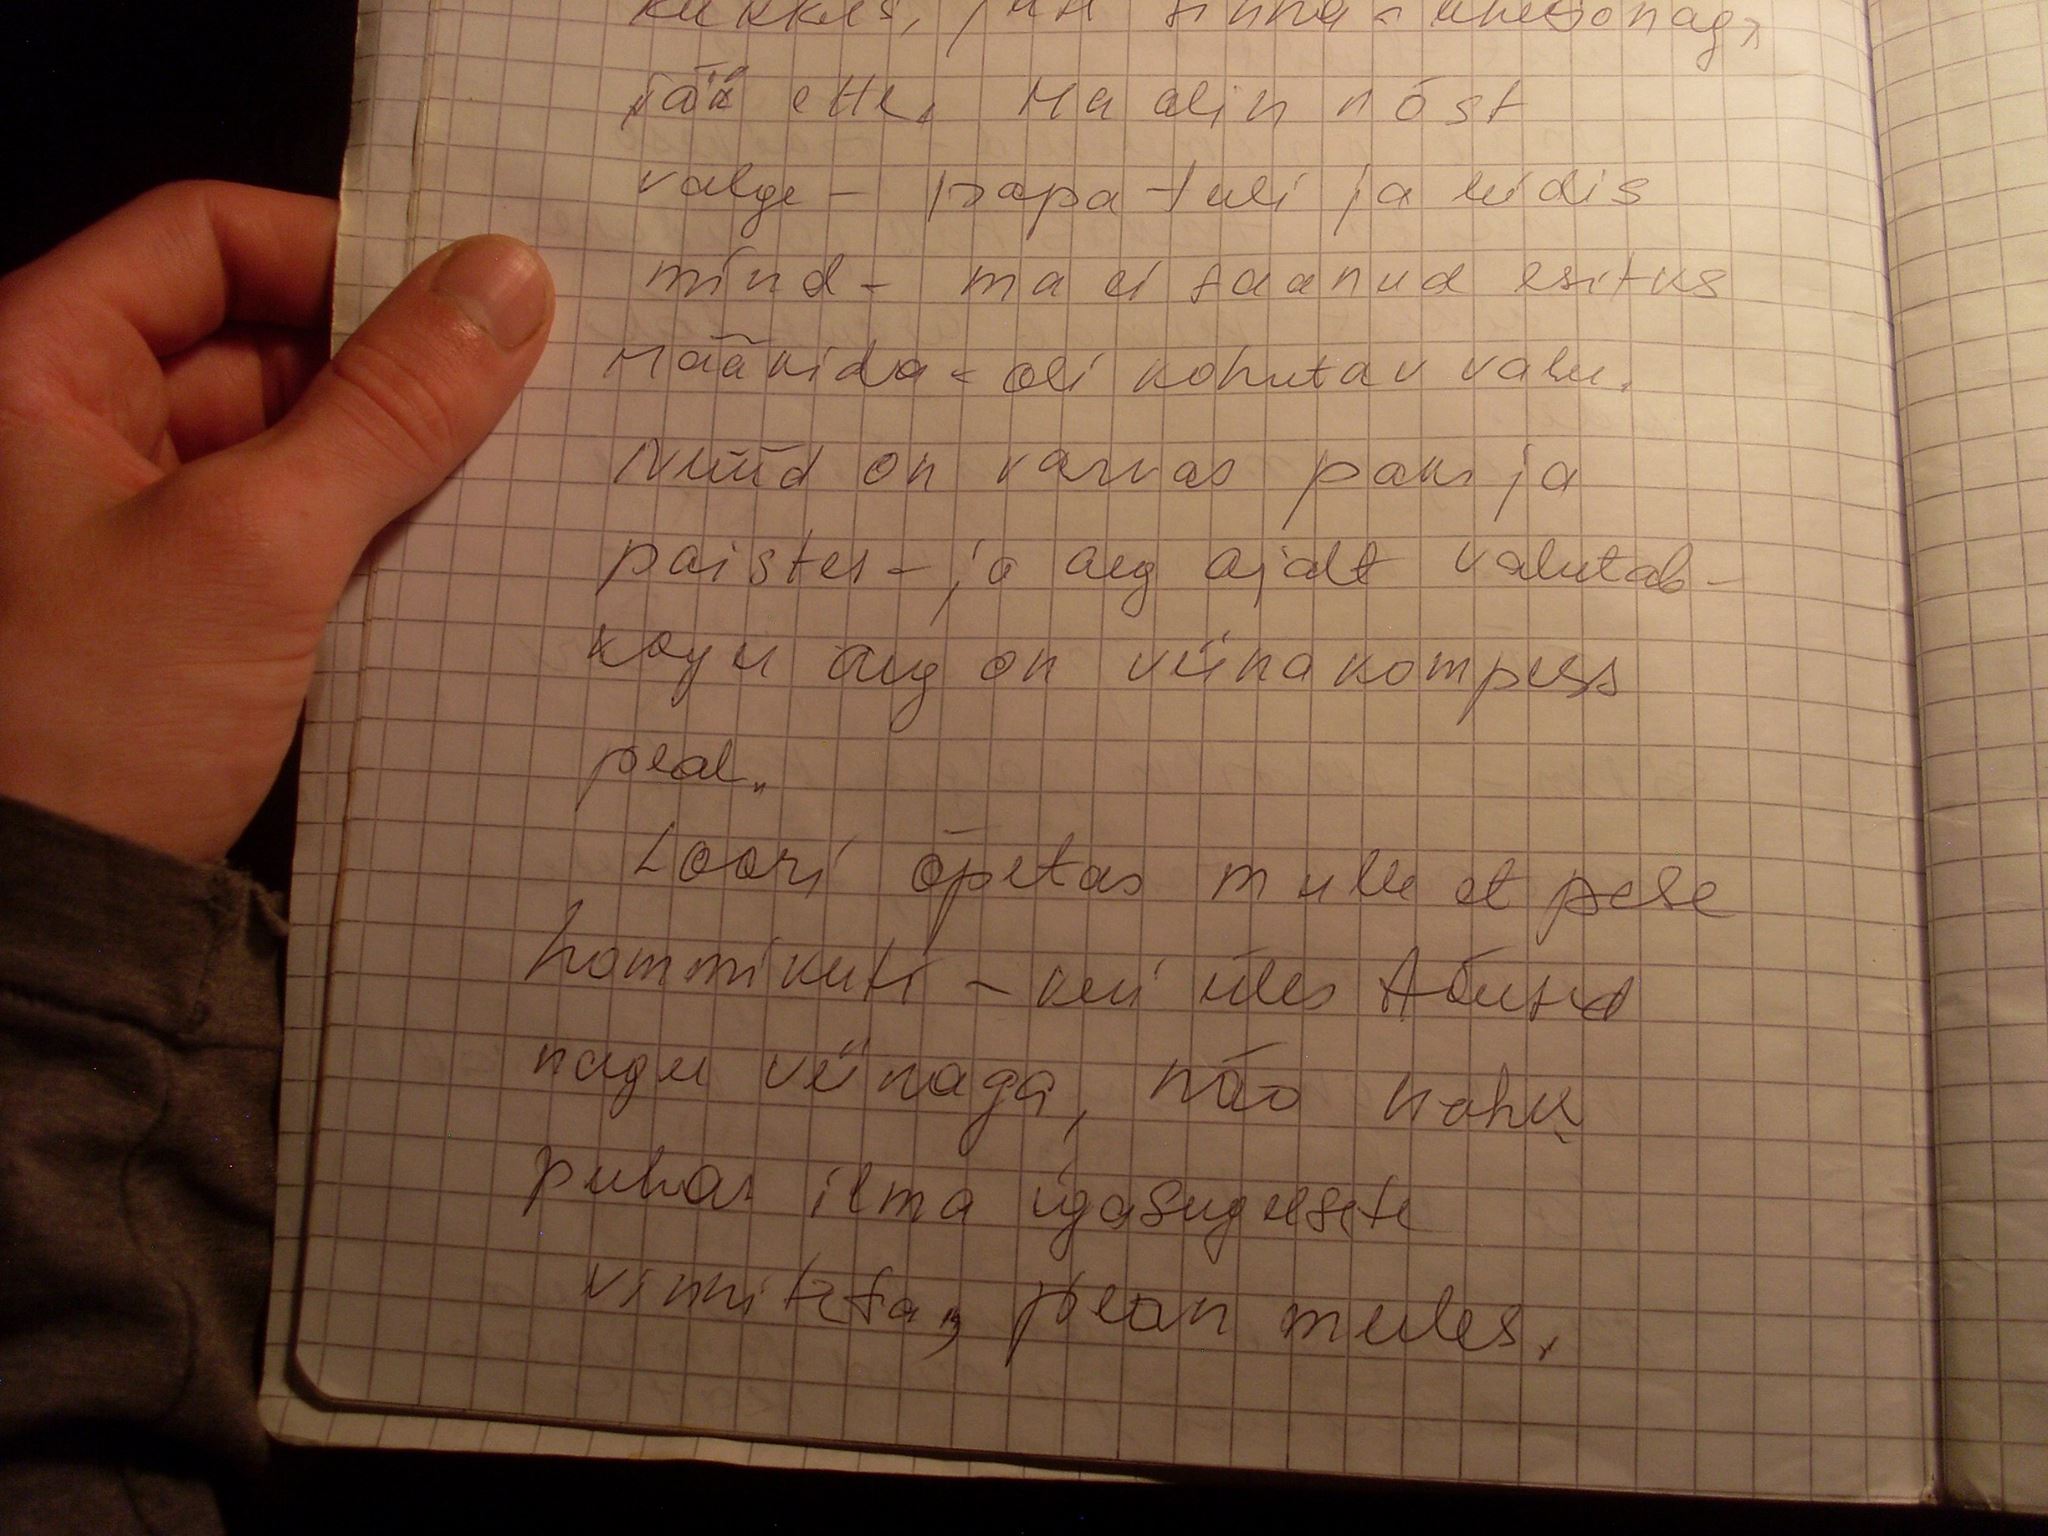 jää ette. Ma olin nöst
valge - papa tuli ja leidis
mind - ma ei saanud esitus
määrida - oli kohutav valu.
Nüüd on varvas paks ja
paistes - ja aeg ajalt valutab -
kogu aeg on viinakompress
peal.
Loori õpetas mulle et pese
hommikuti - keri üles
nagu viinaga, näo nahk
puhas ilma igasugelsete
pean meeles.